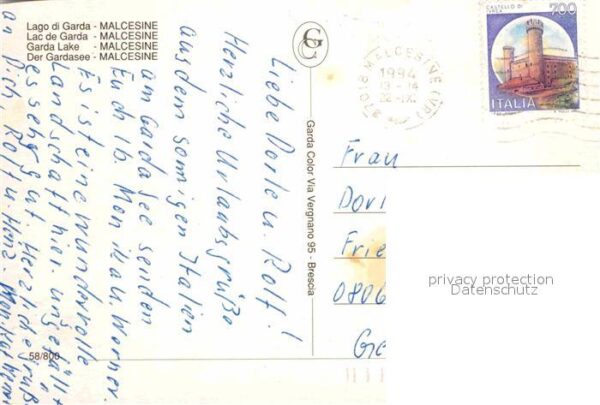 Lago di Garda - MALCESINE
Lac de Garda - MALCESINE
Garda Lake - MALCESINE
Der Gardasee - MALCESINE
Liebe Dorle u. Rolf!
Herzliche Urlaubsgrüße
aus dem sonnigen Italien
am Gardasee senden
Euch lb. Monika u. Werner.
Es ist eine wundervolle
Landschaft hier. uns gefällt
es sehr gut. Herzliche Grüße
an Dich, Rolf u.
58/800
GC
Garda Color Via Vergnano 95 - Brescia
37018 MALCESINE (VR)
1994
13-14
22-IX
CASTELLO DI
IVREA
700
ITALIA
Frau
Dori
Frie
0806
Gre
privacy protection
Datenschutz